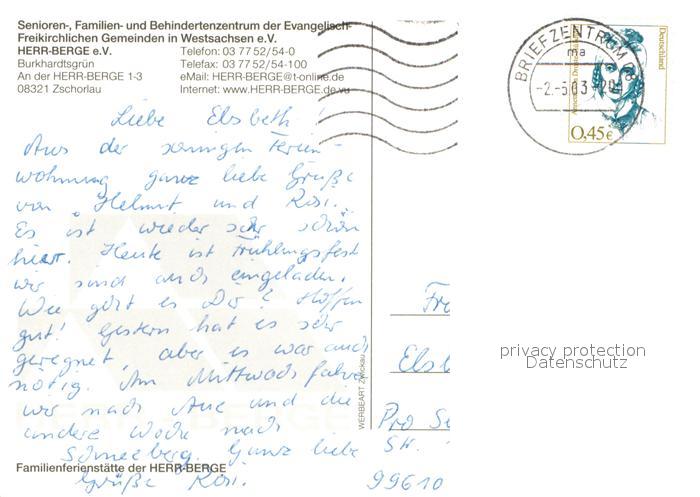 Senioren-, Familien- und Behindertenzentrum der Evangelisch-
Freikirchlichen Gemeinden in Westsachsen e.V.
HERR-BERGE e.V. Telefon: 03 77 52/54-0
Burkhardtsgrün Telefax: 03 77 52/54-100
An der HERR-BERGE 1-3 eMail: HERR-BERGE@t-online.de
08321 Zschorlau Internet: www.HERR-BERGE.de.vu
BRIEFZENTRUM 08
ma
-2.-5.03
Deutschland
0,45€
Liebe Elsbeth!
Aus der sonnigen Ferien-
wohnung ganz liebe Grüße
von Helmut und Rosi.
Es ist wieder sehr schön
hier. Heute ist Frühlingsfest
wir sind auch eingeladen.
Wie geht es Dir? Hoffen
gut! Gestern hat es sehr
geregnet, aber es war auch
nötig. Am Mittwoch fahren
wir nach Aue und die
andere Woche nach
Schneeberg. Ganz liebe
Grüße Rosi.
Elsb
99610
WERBEART Zwickau
privacy protection
Datenschutz
Familienferienstätte der HERR-BERGE